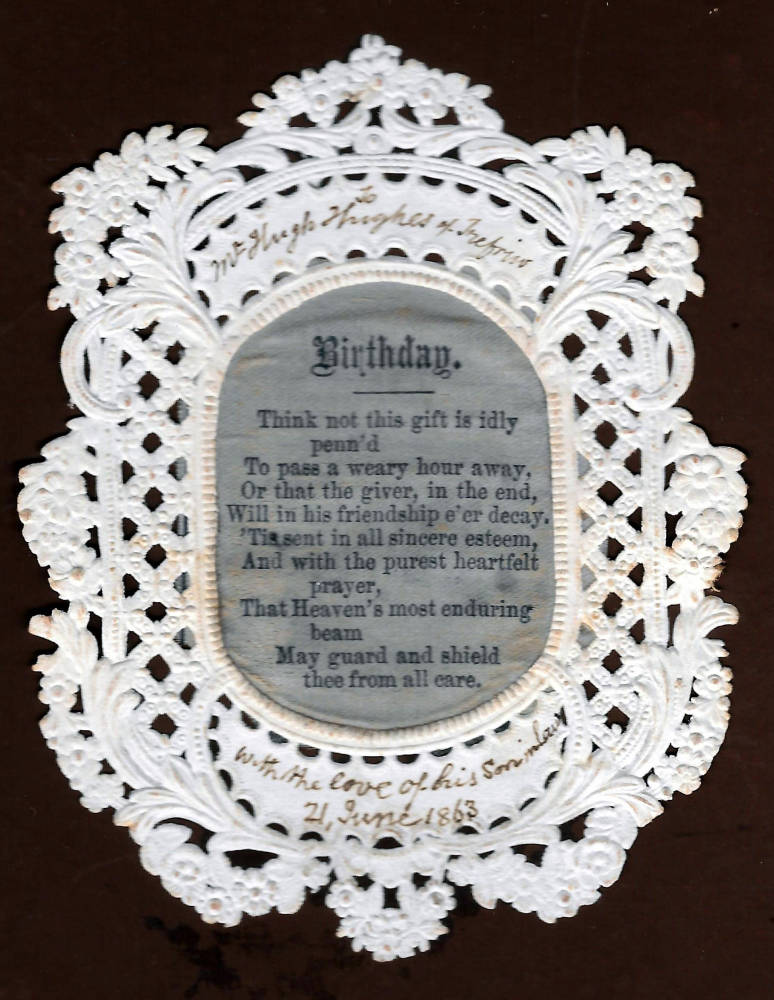 to
Mr Hugh Hughes of Trefriw
Birthday.
Think not this gift is idly
penn'd
To pass a weary hour away,
Or that the giver, in the end,
Will in his friendship e'er decay.
'Tis sent in all sincere esteem,
And with the purest heartfelt
prayer,
That Heaven's most enduring
beam
May guard and shield
thee from all care.
with the love of his Son in law
21, June 1863